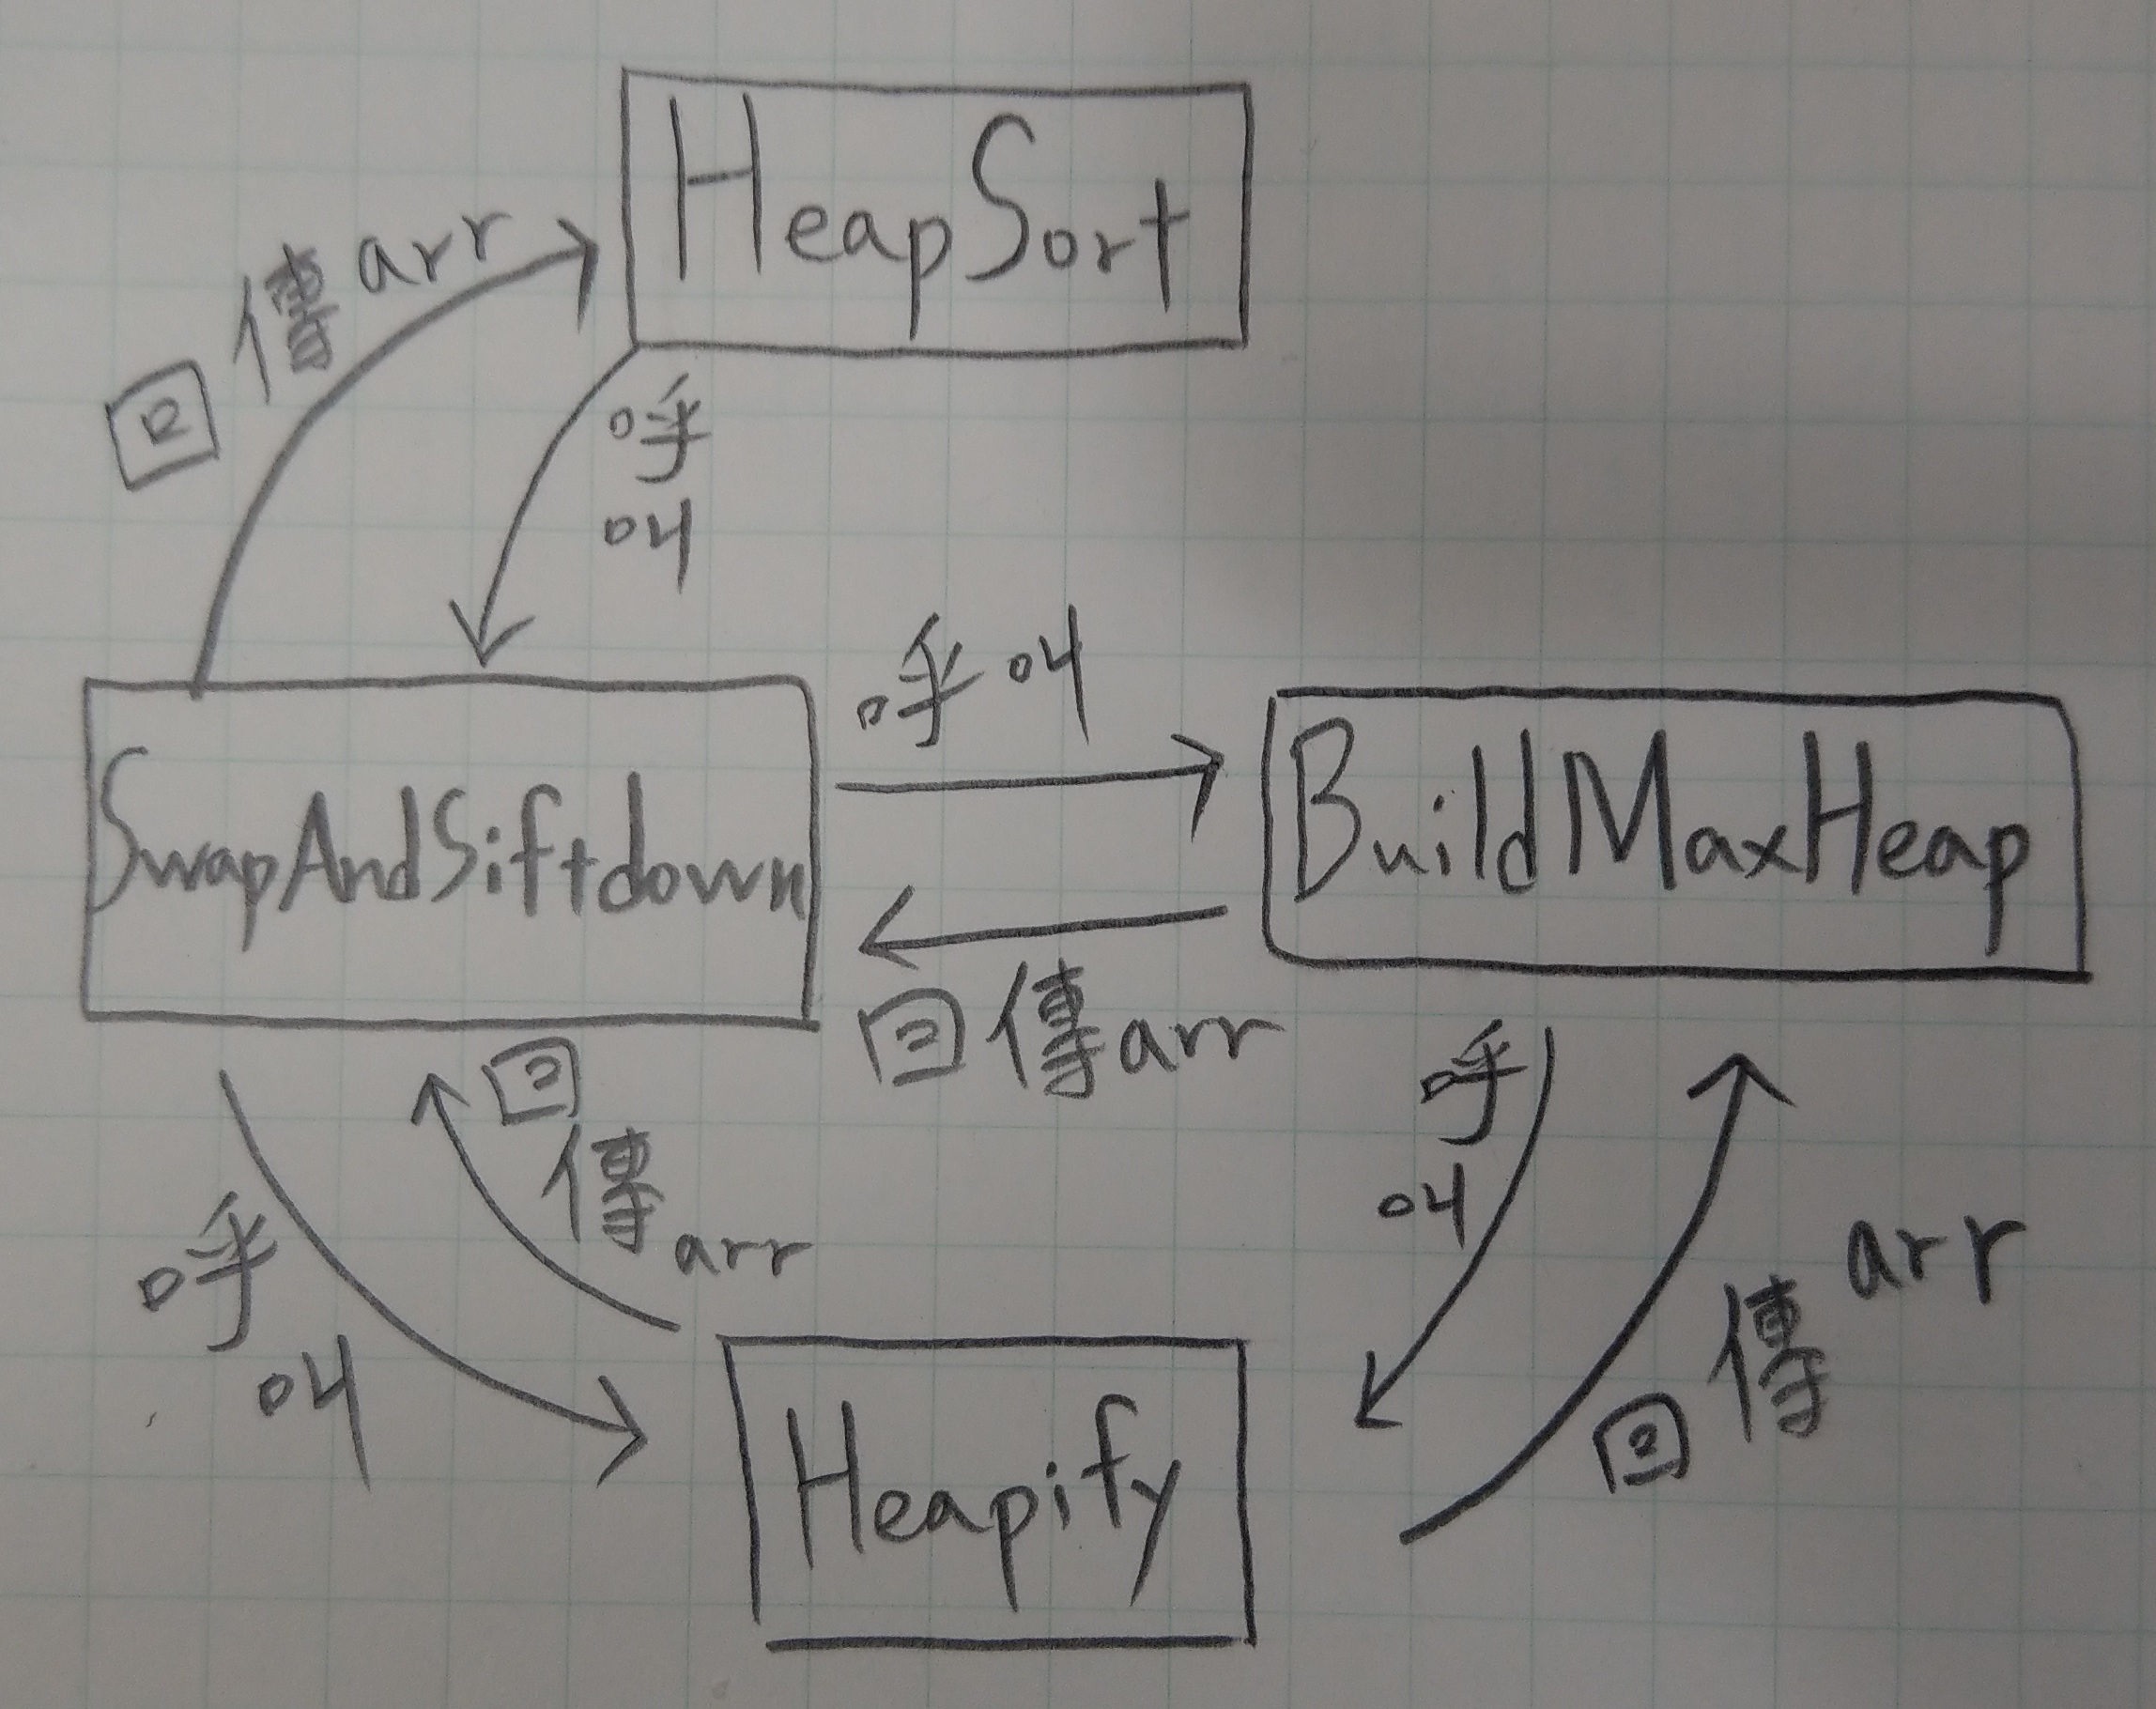 HeapSort
回傳arr
呼叫
SwapAndSiftdown
呼叫
BuildMaxHeap
回傳arr
呼叫
回傳arr
呼叫
回傳arr
Heapify